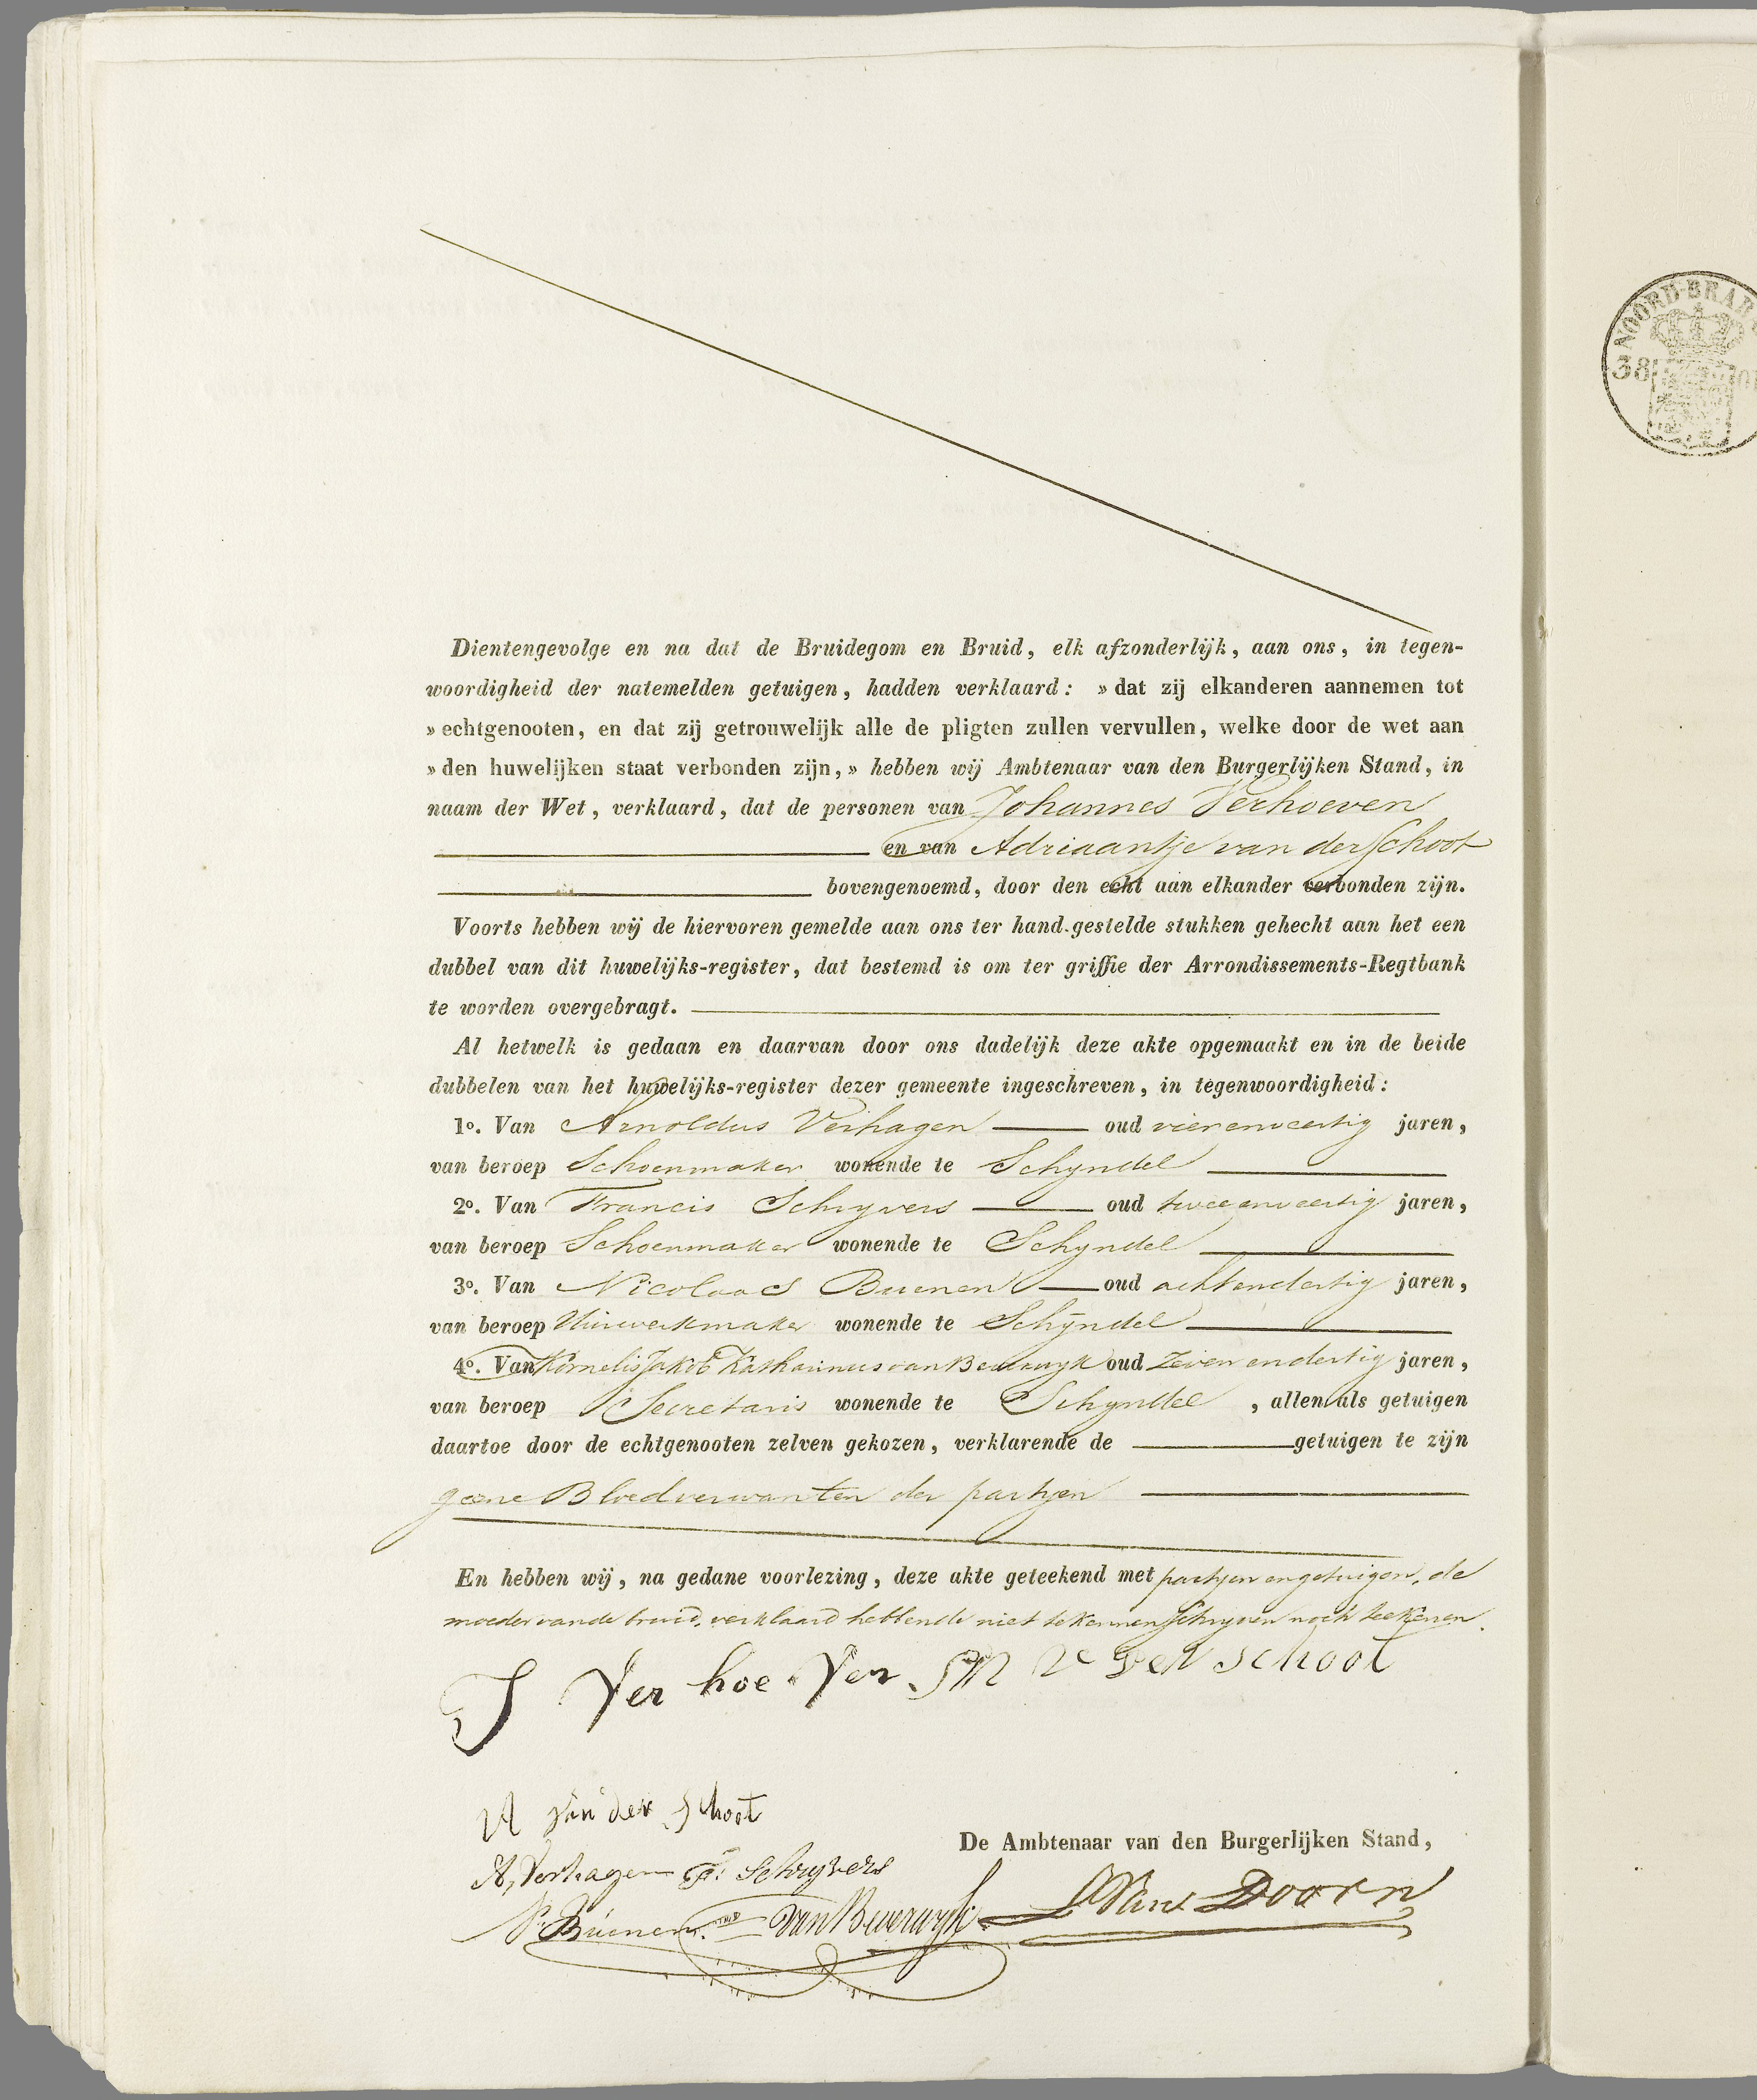 Dientengevolge en na dat de Bruidegom en Bruid, elk afzonderlijk, aan ons, in tegen-
woordigheid der natemelden getuigen, hadden verklaard: » dat zij elkanderen aannemen tot
» echtgenooten, en dat zij getrouwelijk alle de pligten zullen vervullen, welke door de wet aan
» den huwelijken staat verbonden zijn, » hebben wij Ambtenaar van den Burgerlijken Stand, in
naam der Wet, verklaard, dat de personen van Johannes Verhoeven
en van Adriaantje van der Schoot
bovengenoemd, door den echt aan elkander verbonden zijn.
Voorts hebben wij de hiervoren gemelde aan ons ter hand gestelde stukken gehecht aan het een
dubbel van dit huwelijks-register, dat bestemd is om ter griffie der Arrondissements-Regtbank
te worden overgebragt.
Al hetwelk is gedaan en daarvan door ons dadelijk deze akte opgemaakt en in de beide
dubbelen van het huwelijks-register dezer gemeente ingeschreven, in tegenwoordigheid:
1o. Van Arnoldus Verhagen oud vierenveertig jaren,
van beroep Schoenmaker wonende te Schyndel
2o. Van Francis Schryvers oud tweeenveertig jaren,
van beroep Schoenmaker wonende te Schyndel
3o. Van Nicolaas Buenen oud achtendertig jaren,
van beroep Uurwerkmaker wonende te Schyndel
4o. Van Kornelis Jakob Katharinus van Beverwyk oud Zeven endertig jaren,
van beroep Secretaris wonende te Schyndel, allen als getuigen
daartoe door de echtgenooten zelven gekozen, verklarende de getuigen te zijn
geene Bloedverwanten der partyen
En hebben wij, na gedane voorlezing, deze akte geteekend met partyen en getuigen, de
moeder van de bruid, verklaard hebbende niet te kunnen schryven noch teekenen.
J Ver hoe Ven M V der schoot
A van der Schoot
De Ambtenaar van den Burgerlijken Stand,
A, Verhagen F: Schryvers
N. Buenen. van Beverwyk Van Doorn
NOORD-BRAB
38